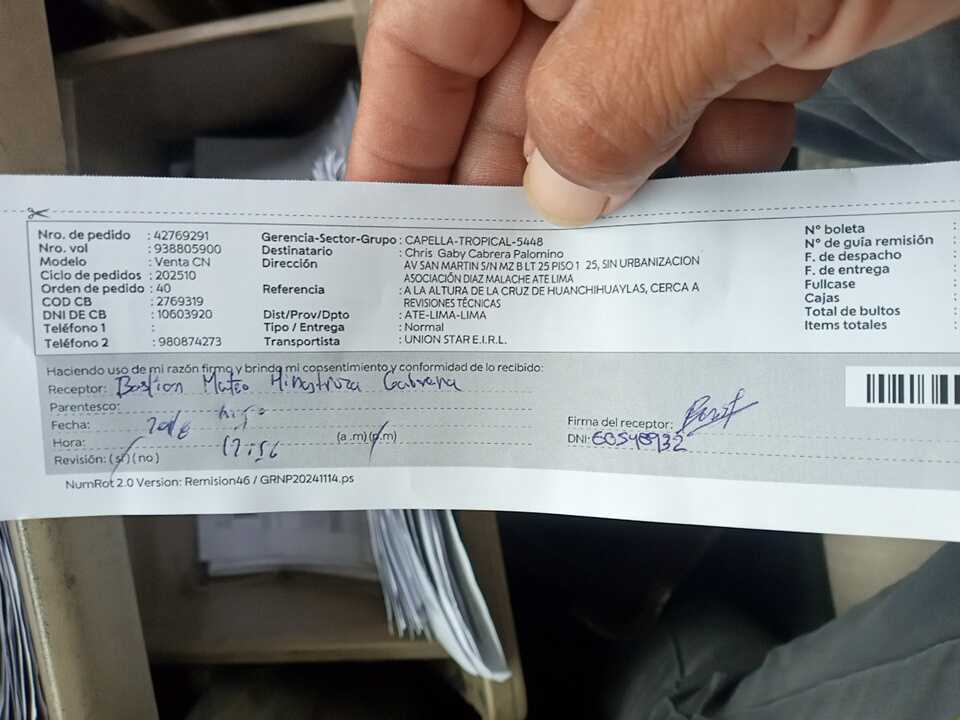 Nro. de pedido : 42769291
Nro. vol : 938805900
Modelo : Venta CN
Ciclo de pedidos : 202510
Orden de pedido : 40
COD CB : 2769319
DNI DE CB : 10603920
Teléfono 1 :
Teléfono 2 : 980874273
Gerencia-Sector-Grupo : CAPELLA-TROPICAL-5448
Destinatario : Chris Gaby Cabrera Palomino
Dirección : AV SAN MARTIN S/N MZ B LT 25 PISO 1 25, SIN URBANIZACION
ASOCIACIÓN DIAZ MALACHE ATE LIMA
Referencia : A LA ALTURA DE LA CRUZ DE HUANCHIHUAYLAS, CERCA A
REVISIONES TÉCNICAS
Dist/Prov/Dpto : ATE-LIMA-LIMA
Tipo / Entrega : Normal
Transportista : UNION STAR E.I.R.L.
N° boleta :
N° de guía remisión :
F. de despacho :
F. de entrega :
Fullcase :
Cajas :
Total de bultos :
Items totales :
Haciendo uso de mi razón firmo y brindo mi consentimiento y conformidad de lo recibido:
Receptor: Bastion Mateo Hinostroza Cabrera
Parentesco: hijo
Fecha:
Hora: 12:56 (a.m)(p.m)
Revisión: (si)(no)
Firma del receptor:
DNI: 60548932
NumRot 2.0 Version: Remision46 / GRNP20241114.ps